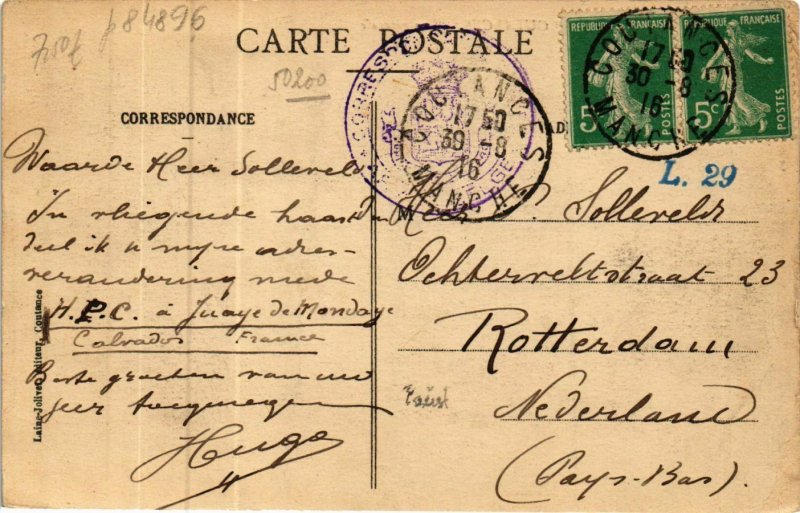 7,50f
p84896
50200
CARTE POSTALE
CORRESPONDANCE
REPUBLIQUE FRANÇAISE
REPUBLIQUE FRANÇAISE
5c
5c
POSTES
POSTES
COUTANCES
17 50
30 -8
16
MANCHE
COUTANCES
17 50
30 -8
16
MANCHE
L. 29
Waarde Heer Solleveld
In vliegende haast
deel ik u mijne adres-
verandering mede
H.P.C. à Juaye de Mondaye
Calvados France
Beste groeten van uw
zeer toegenegen
Hugo
Solleveld
Ochterveltstraat 23
Rotterdam
Nederland
(Pays-Bas).
Laine-Jolivet, Editeur, Coutance